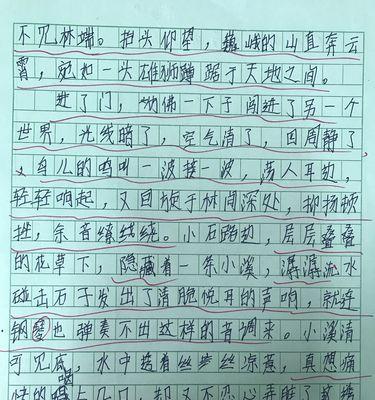 不见林端。抬头仰望，巍峨的山直奔云
霄，宛如一头雄狮蹲踞于天地之间。
进了门，仿佛一下子闯进了另一个
世界，光线暗了，空气清了，四周静了
，鸟儿的鸣叫一波接一波，荡人耳边，
轻轻响起，又回旋于林间深处，抑扬顿
挫，余音缭绕绕。小石路边，层层叠叠
的花草下，隐藏着一条小溪，潺潺流水
碰击石子发出了清脆悦耳的声响，就连
钢琴也弹奏不出这样的音调来。小溪清
可见底，水中透着丝丝凉意，真想痛